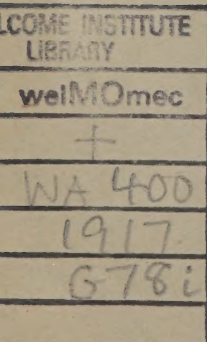 LCOME INSTITUTE
LIBRARY
welMOmec
+
WA 400
1917
G78i